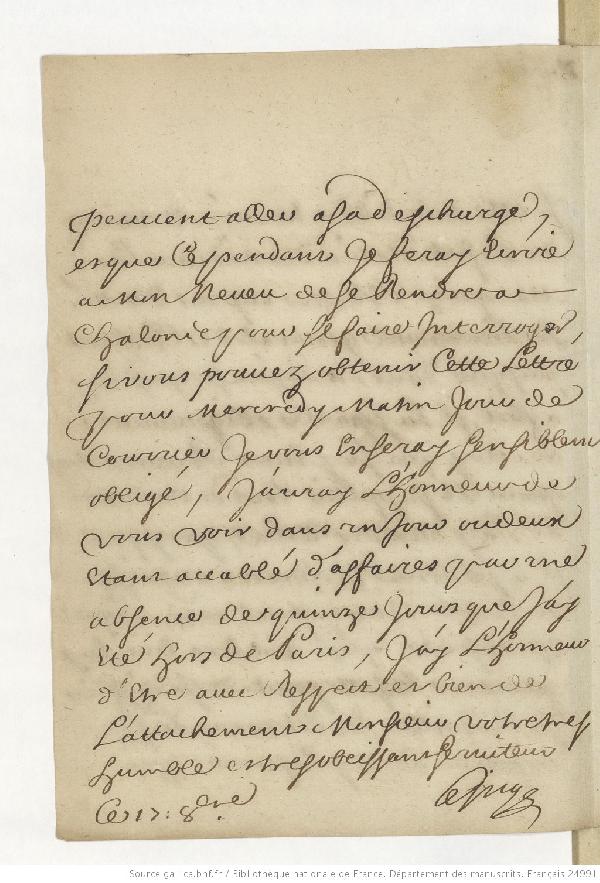 peuuent aller a sa descharge,
et que Cependant Je feray Ecrire
a Mon Neueu de se Rendre a
Chalon pour se faire Interroger
si vous pouuez obtenir Cette Lettre
pour Mercredy Matin Jour de
Courrier Je vous En seray sensiblem
obligé, J'auray L'honneur de
vous voir dans un Jour ou deux
Etant accablé d'affaires par une
absence de quinze Jours que J'ay
Eté hors de Paris, J'ay L'honneur
d'Etre auec Respect et bien de
L'attachement Monsieur votre tres
humble et tres obeissant seruiteur
Ce 17: 8bre
Source gallica.bnf.fr / Bibliothèque nationale de France. Département des manuscrits. Français 24991